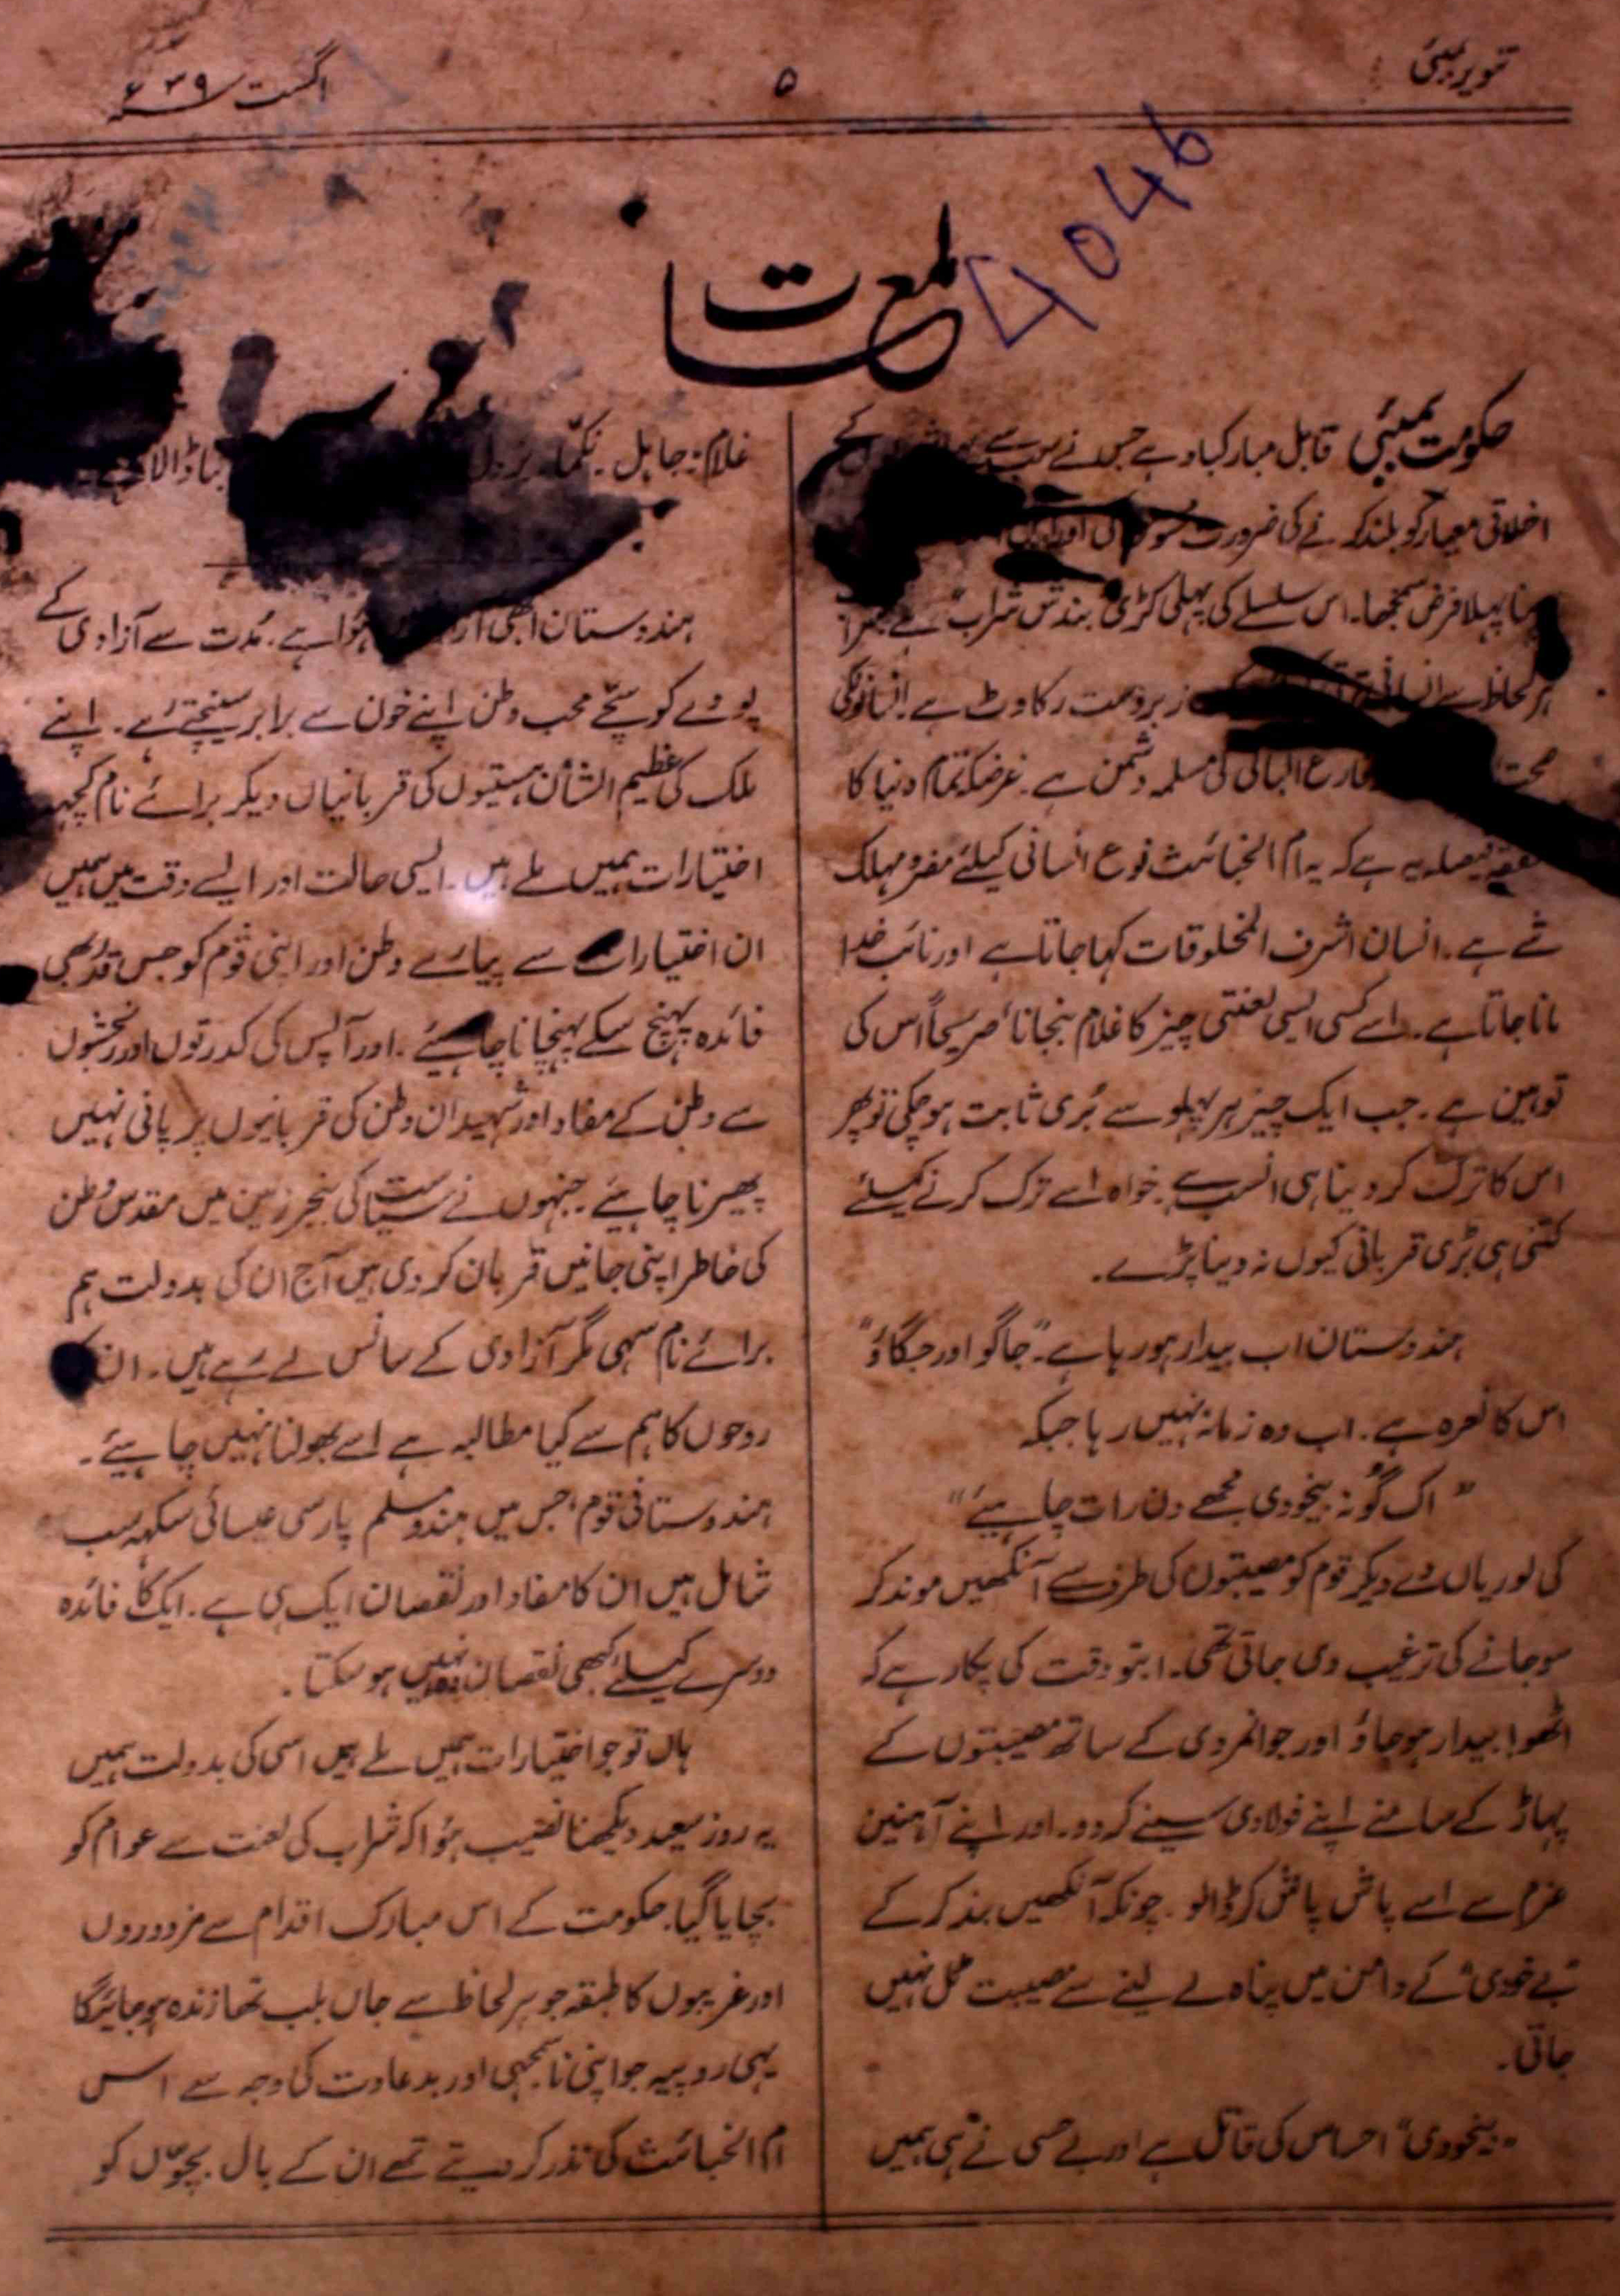 تنویر بمبئی
۵
اگست ۳۹ء
4046
لمعات
حکومت بمبئی قابل مبارکباد ہے جس نے سب سے کے
اخلاقی معیار کو بلند کرنے کی ضرورت محسوس کی اور
اپنا پہلا فرض سمجھا۔ اس سلسلے کی پہلی کڑی بندش شراب ہے
ہر لحاظ سے زبردست رکاوٹ ہے۔ انسانونکی
صحت فارغ البالی کی مسلمہ دشمن ہے۔ غرضکہ تمام دنیا کا
متفقہ فیصلہ یہ ہے کہ یہ ام الخبائث نوع انسانی کیلئے مضر و مہلک
شے ہے۔ انسان اشرف المخلوقات کہا جاتا ہے اور نائب خدا
مانا جاتا ہے۔ اسے کسی ایسی لعنتی چیز کا غلام بنجانا صریحاً اس کی
توہین ہے۔ جب ایک چیز ہر پہلو سے بُری ثابت ہو چکی تو پھر
اس کا ترک کر دینا ہی انسب ہے۔ خواہ اسے ترک کرنے کیلئے
کتنی ہی بڑی قربانی کیوں نہ دینا پڑے۔
ہندوستان اب بیدار ہو رہا ہے۔ "جاگو اور جگاؤ"
اس کا نعرہ ہے۔ اب وہ زمانہ نہیں رہا جبکہ
"اک گُونہ بیخودی مجھے دن رات چاہیئے"
کی لوریاں دے دیکر قوم کو مصیبتوں کی طرف سے آنکھیں موند کر
سو جانے کی ترغیب دی جاتی تھی۔ ابتو وقت کی پکار ہے کہ
اٹھو! بیدار ہو جاؤ اور جوانمردی کے ساتھ مصیبتوں کے
پہاڑ کے سامنے اپنے فولادی سینے کر دو۔ اور اپنے آہنین
عزم سے اسے پاش پاش کر ڈالو۔ چونکہ آنکھیں بند کر کے
"بے خودی" کے دامن میں پناہ لے لینے سے مصیبت ٹل نہیں
جاتی۔
"بیخودی" احساس کی قاتل ہے اور بے حسی نے ہی ہمیں
غلام۔ جاہل۔ نکمّا۔ بزدل بنا ڈالا ہے۔
ہندوستان ابھی ہُوا ہے۔ مُدت سے آزادی کے
پودے کو سچّے محب وطن اپنے خون سے برابر سینچتے رہے۔ اپنے
ملک کی عظیم الشان ہستیوں کی قربانیاں دیکر برائے نام کچھ
اختیارات ہمیں ملے ہیں۔ ایسی حالت اور ایسے وقت میں ہمیں
ان اختیارات سے پیارے وطن اور اپنی قوم کو جس قدر بھی
فائدہ پہنچ سکے پہنچانا چاہیئے۔ اور آپس کی کدرتوں اور رنجشوں
سے وطن کے مفاد اور شہیدان وطن کی قربانیوں پر پانی نہیں
پھیرنا چاہیئے۔ جنہوں نے سیاست کی بنجر زمین میں مقدس وطن
کی خاطر اپنی جانیں قربان کر دی ہیں آج ان کی بدولت ہم
برائے نام سہی مگر آزادی کے سانس لے رہے ہیں۔ ان کی
روحوں کا ہم سے کیا مطالبہ ہے اسے بھولنا نہیں چاہیئے۔
ہندوستانی قوم، جس میں ہندو مسلم پارسی عیسائی سکھ سب
شامل ہیں ان کا مفاد اور نقصان ایک ہی ہے۔ ایک کا فائدہ
دوسرے کیلئے کبھی نقصان دہ نہیں ہو سکتا۔
ہاں تو جو اختیارات ہمیں ملے ہیں اسی کی بدولت ہمیں
یہ روز سعید دیکھنا نصیب ہُوا کہ شراب کی لعنت سے عوام کو
بچایا گیا۔ حکومت کے اس مبارک اقدام سے مزدوروں
اور غریبوں کا طبقہ جو ہر لحاظ سے جاں بلب تھا زندہ ہو جائیگا
یہی روپیہ جو اپنی ناسمجھی اور بد عادت کی وجہ سے اس
ام الخبائث کی نذر کر دیتے تھے ان کے بال بچوّں کو